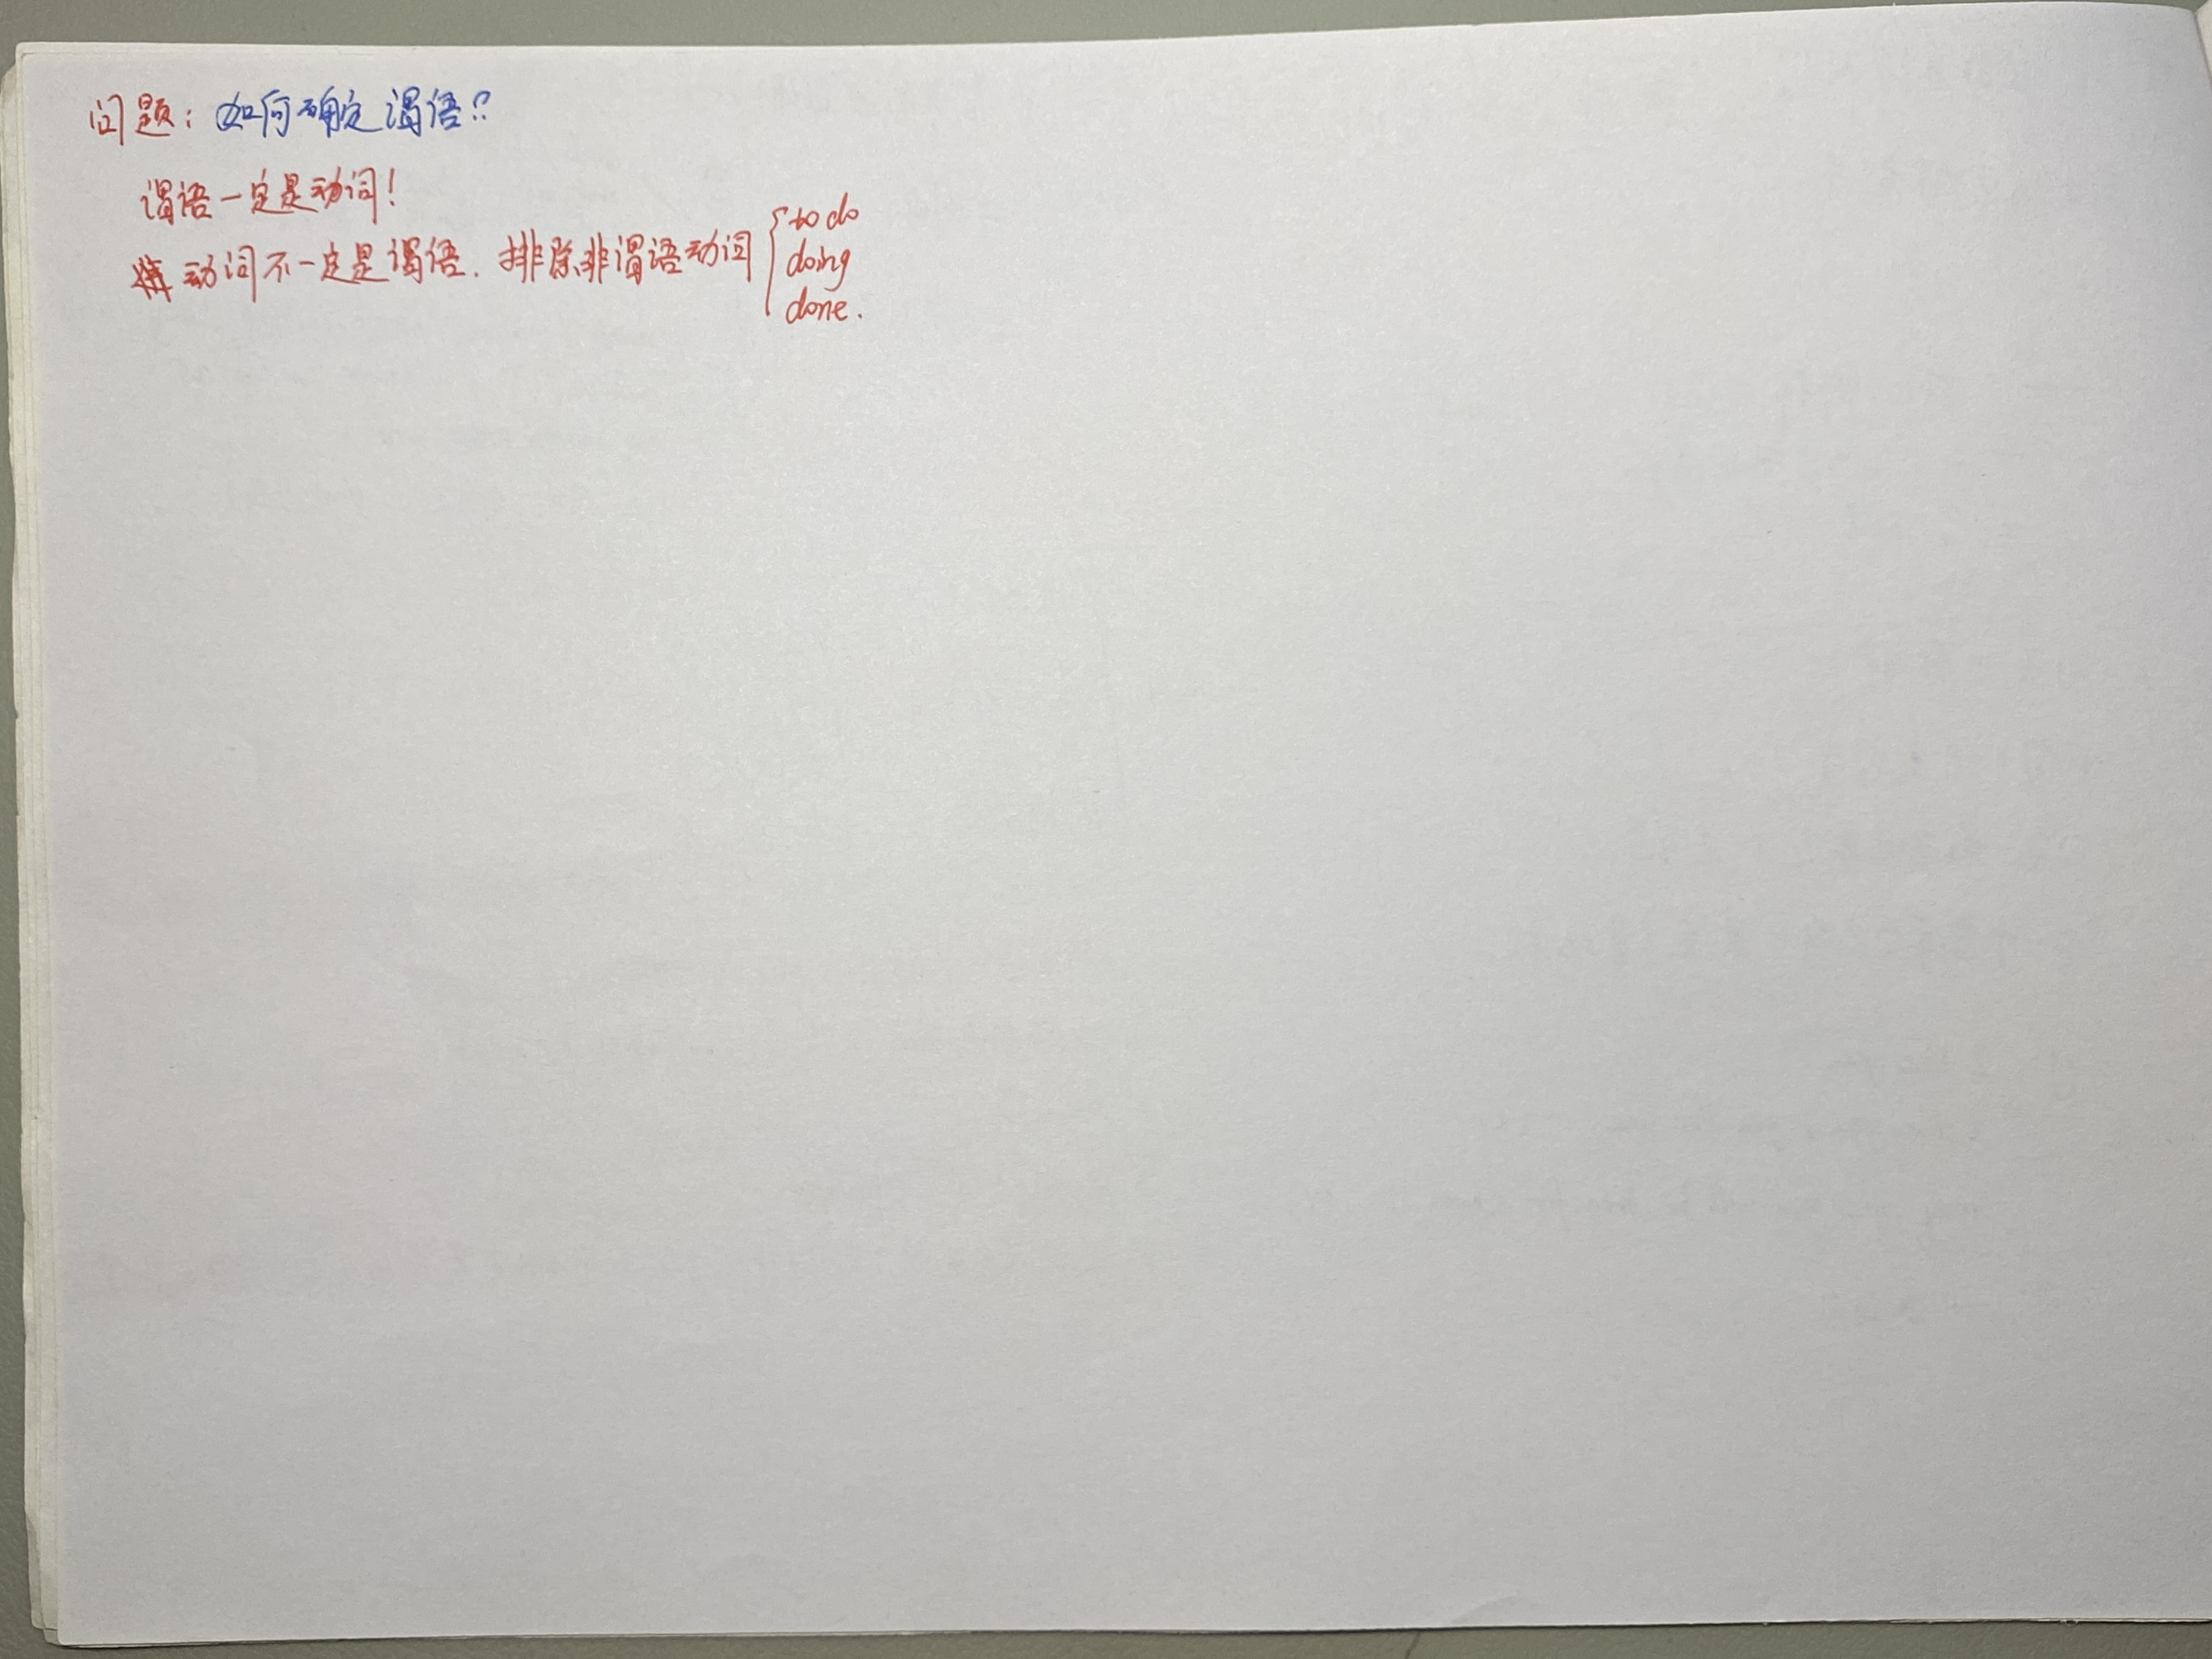 问题：如何确定谓语？
谓语一定是动词！
动词不一定是谓语．排除非谓语动词
to do
doing
done.